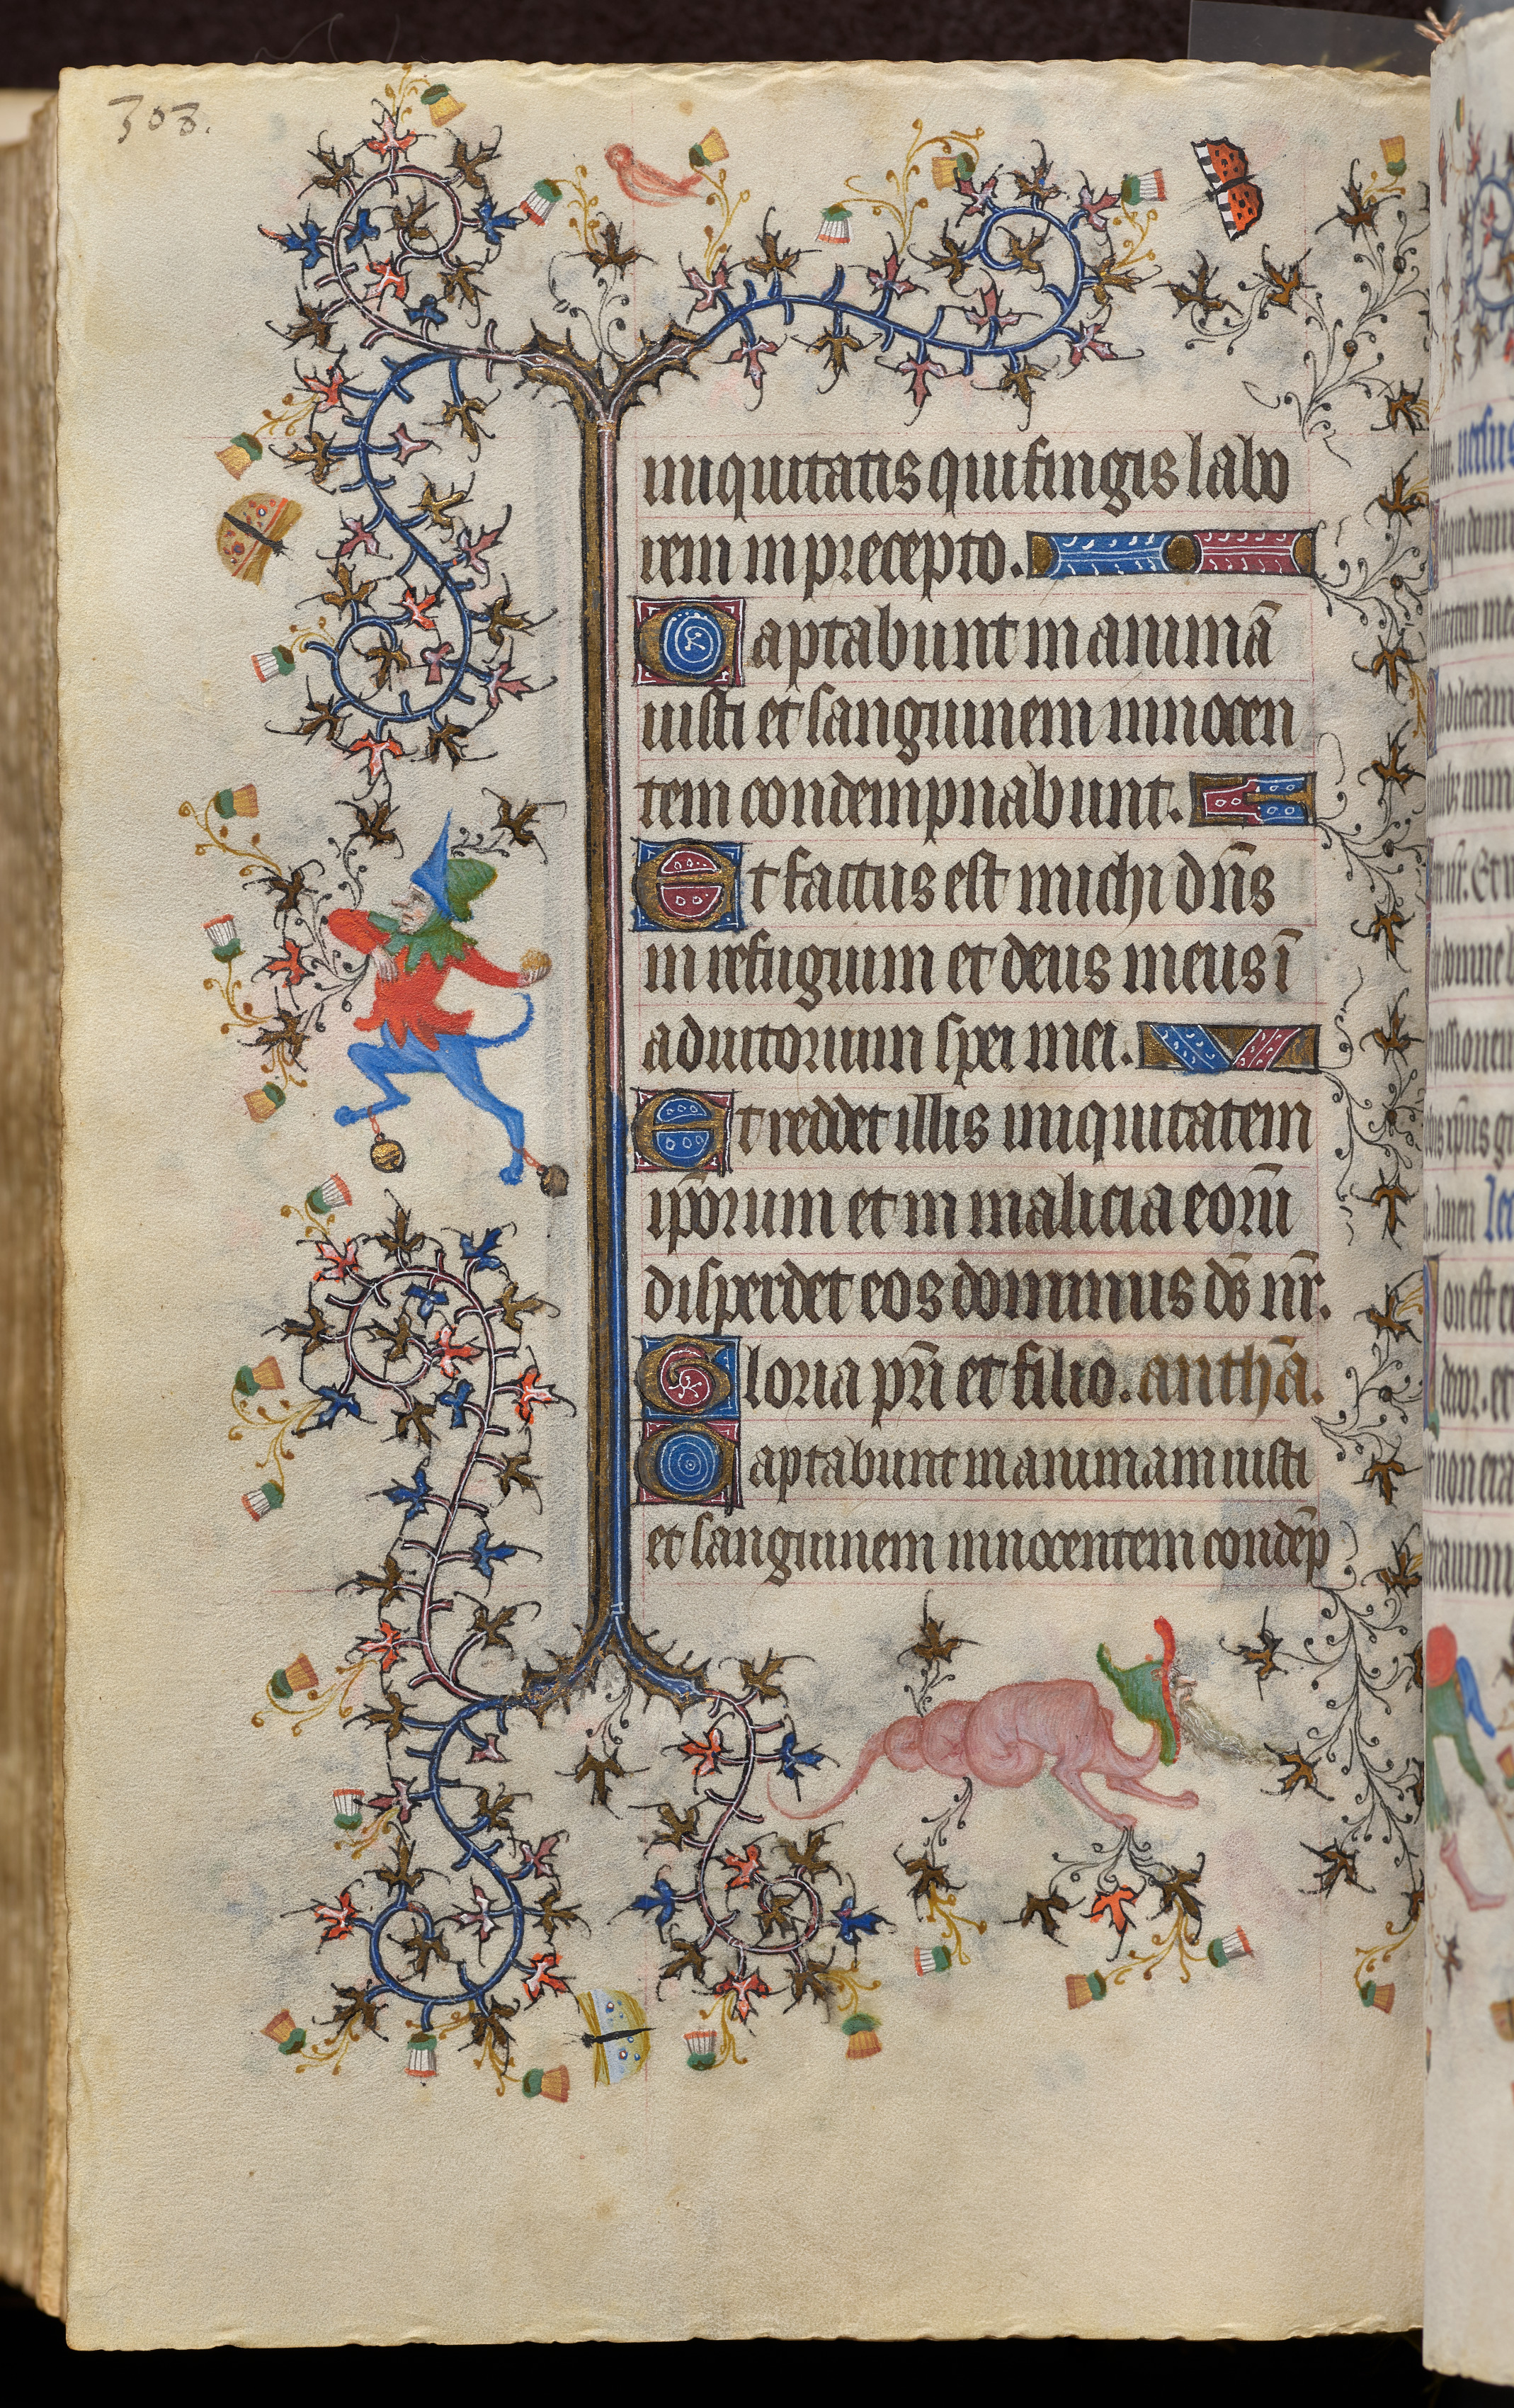 308.
iniquitatis qui fingis labo
rem in precepto.
Captabunt in animā
iusti et sanguinem innocen
tem condempnabunt.
Et factus est michi dn̄s
in refugium et deus meus ī
adiutorium spei mei.
Et reddet illis iniquitatem
ip̄orum et in malicia eorū
disperdet eos dominus ds̄ nr̄.
Gloria pr̄i et filio. anth̄a.
Captabunt in animam iusti
et sanguinem innocentem condēp